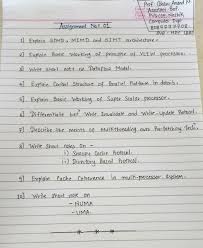 Prof. Gholam Anand M
Assistant Prof
Computer Dept
Assignment No: 01
1] Explain SIMD, MIMD and SIMT architecture.
2] Explain Basic Working of principle of VLIW processor.
3] Write short note on Dataflow Model.
4] Explain Control Structure of Parallel Platform in details.
5] Explain Basic Working of Super Scalar processor.
6] Differentiate bet Write Invalidate and Write Update Protocol.
7] Describe the merits of Multithreading over Pre-fetching Tech.
8] Write short notes on -
i) Snoopy Cache Protocol.
ii) Directory Based Protocol.
9] Explain Cache Coherence in multi-processor system.
10] Write short note on
- NUMA
- UMA.